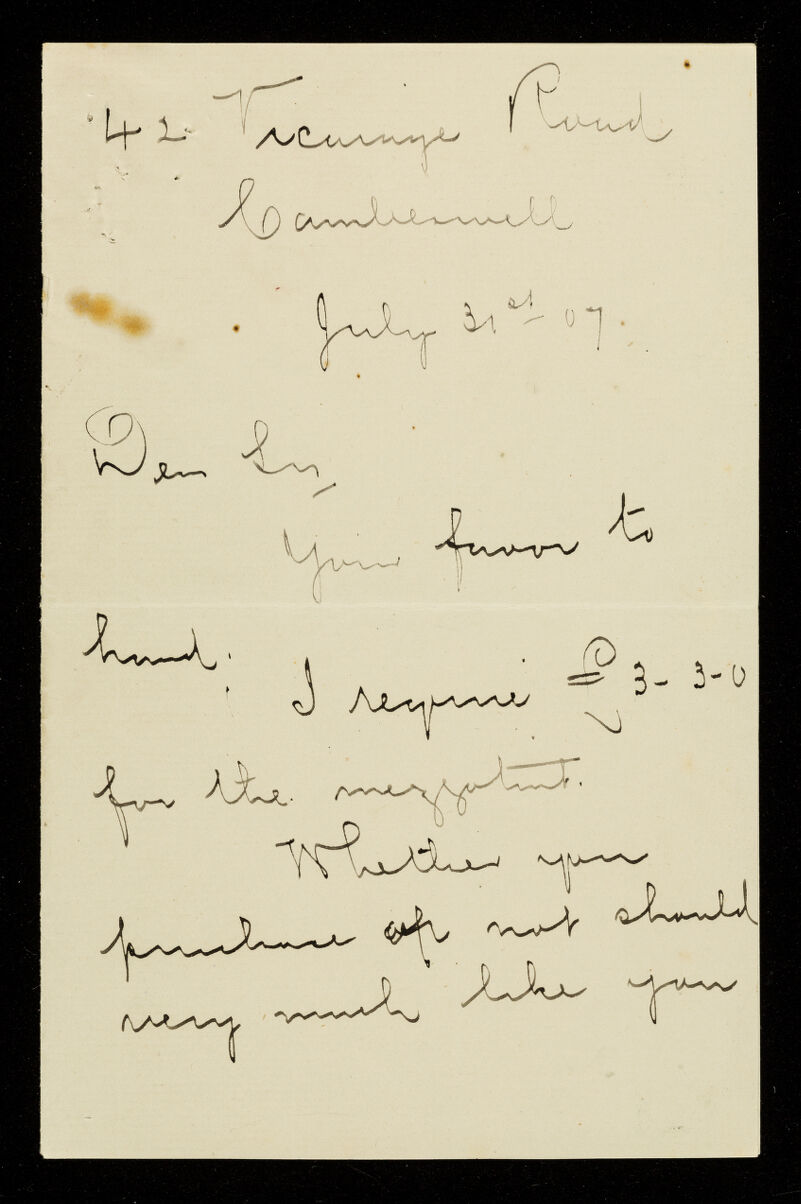 42 Vicarage Road
Camberwell
July 31st 07.
Dear Sir,
Your favor to
hand. I require £3-3-0
for the mezzotint.
Whether you
purchase or not should
very much like you